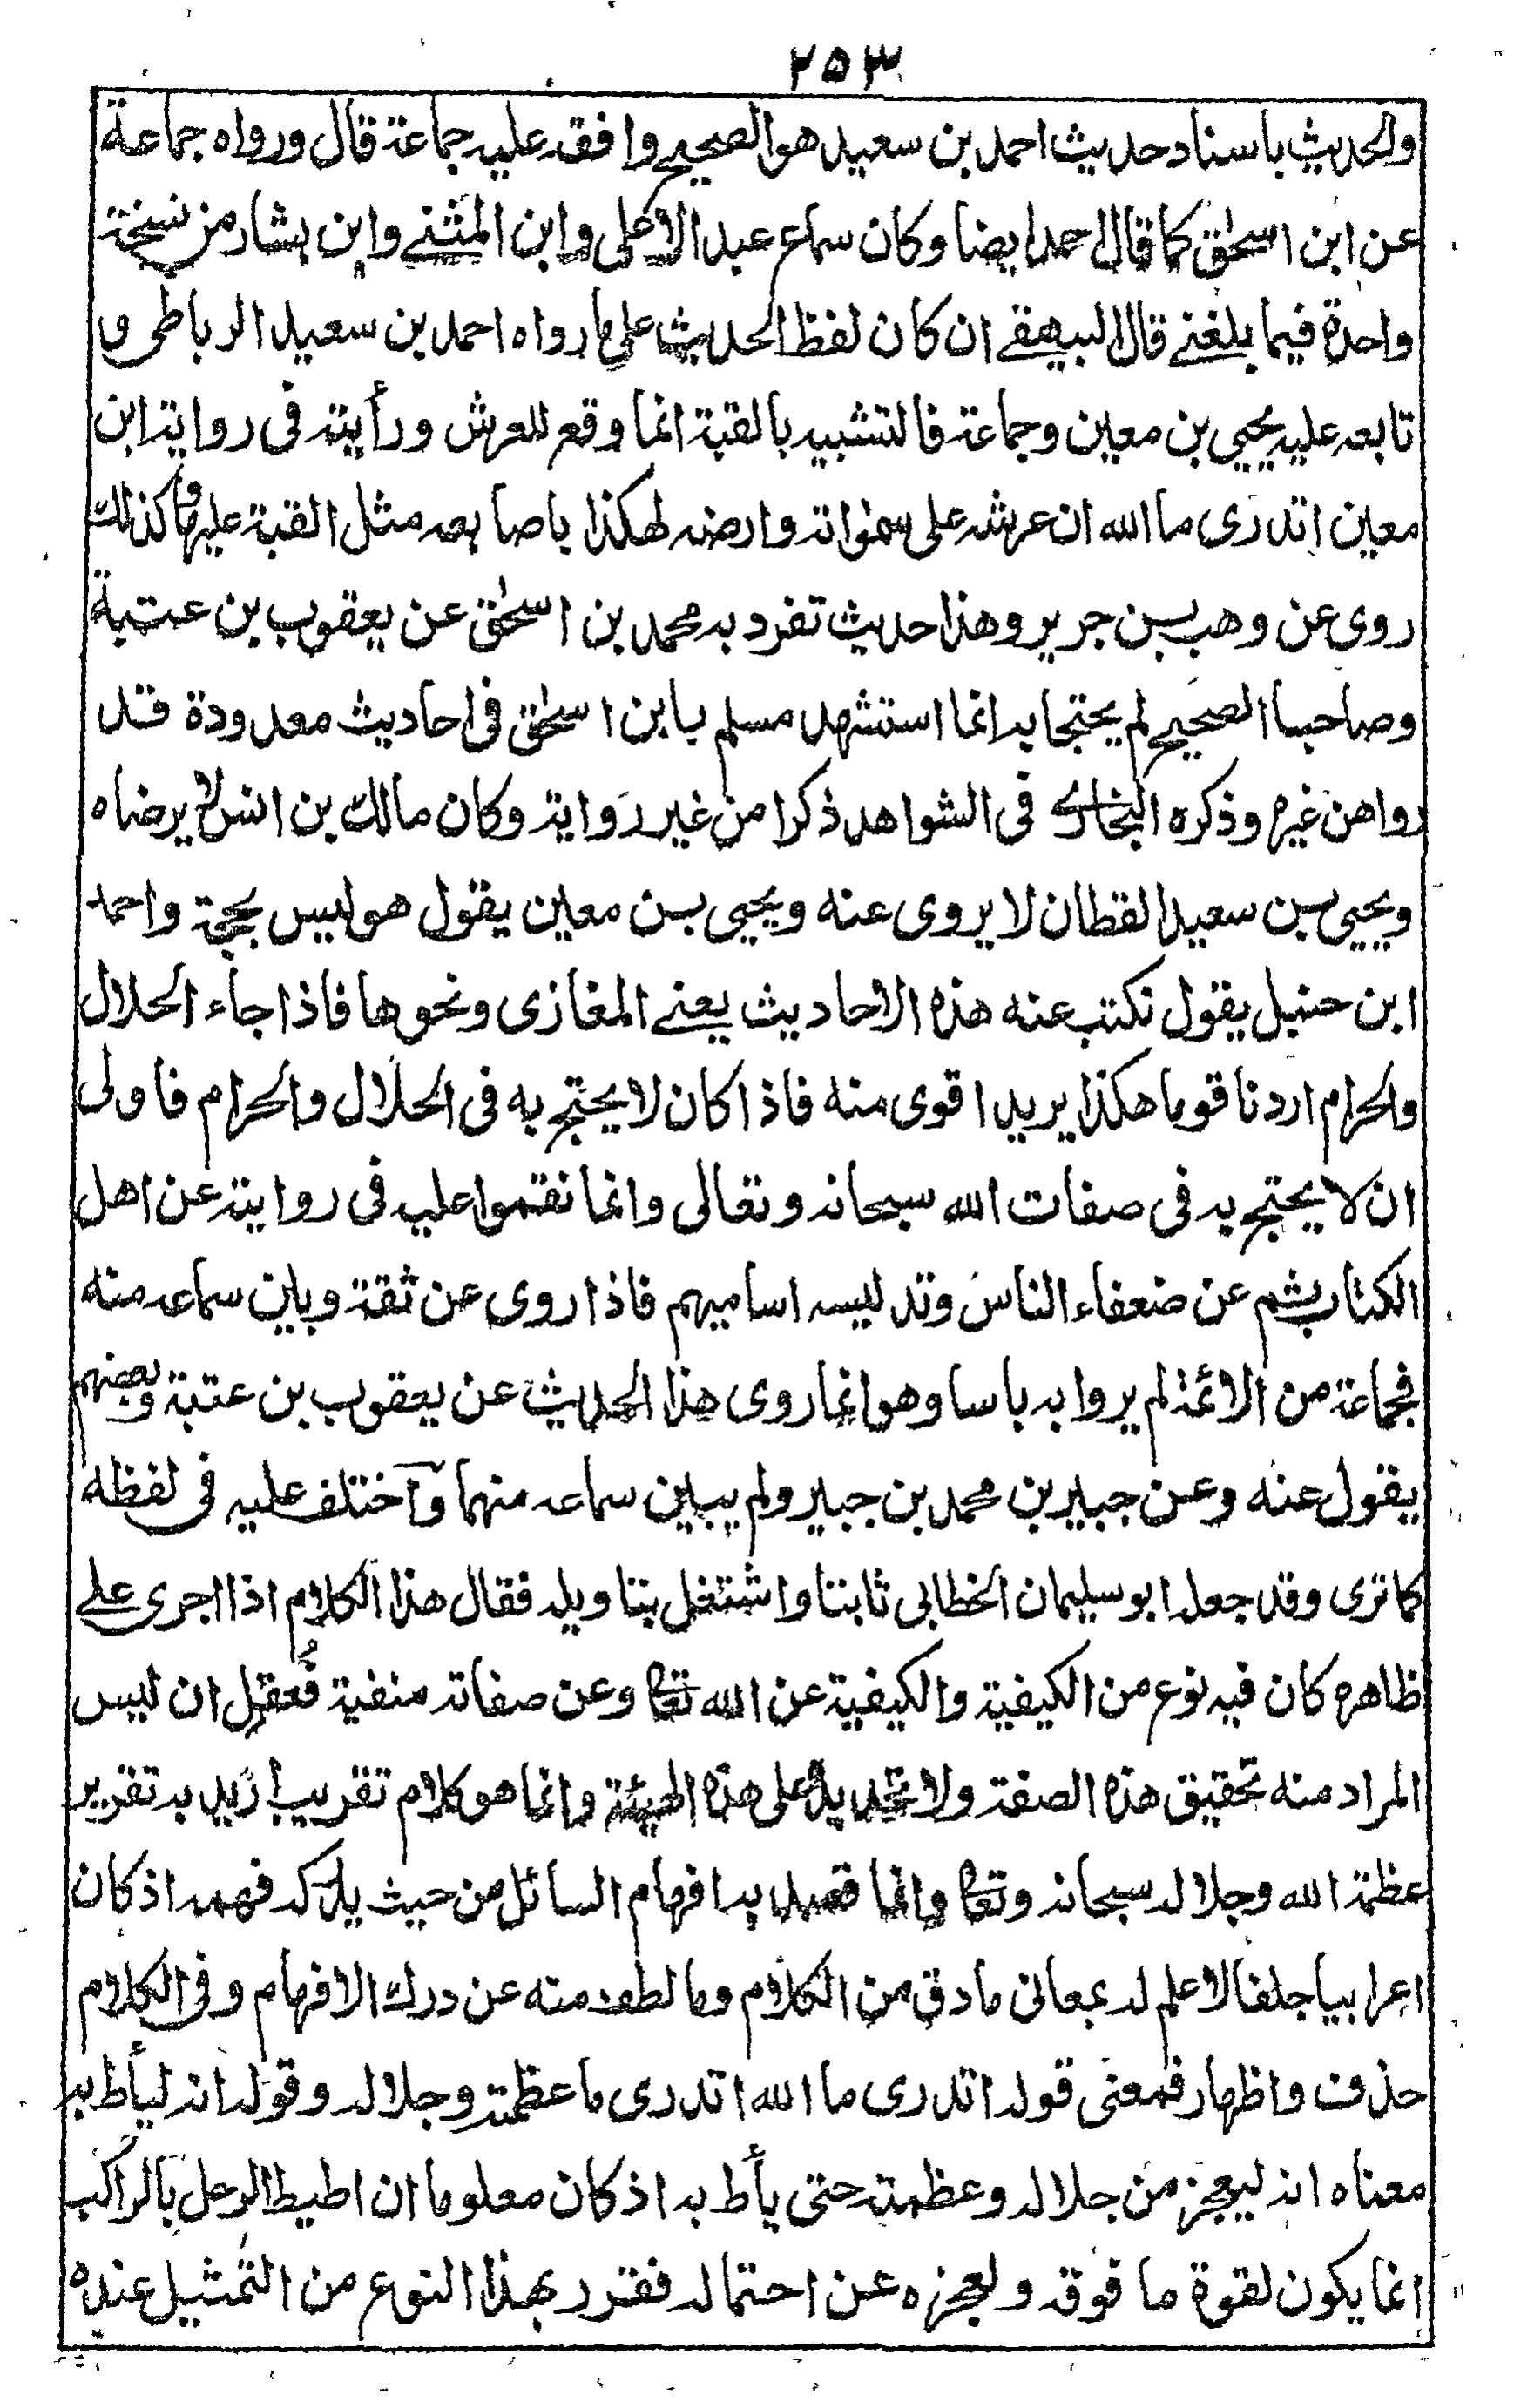 ٢٥٣
والحديث باسناد حديث احمد بن سعيد هو الصحيح وافقه عليه جماعة قال ورواه جماعة
عن ابن اسحٰق كما قال احمد ايضا وكان سماع عبد الاعلى وابن المثنے وابن بشار من نسخة
واحدة فيما بلغنے قال البيهقے ان كان لفظ الحديث على ما رواه احمد بن سعيد الرباطى و
تابعه عليه يحيى بن معين وجماعة فالتشبيه بالقبة انما وقع للعرش ورأيته فى رواية ابن
معين اتدرى ما الله ان عرشه على سمٰواته وارضه لهكذا باصابعه مثل القبة عليها وكذلك
روى عن وهب بن جرير وهذا حديث تفرد به محمد بن اسحٰق عن يعقوب بن عتبة
وصاحبا الصحيح لم يحتجا به انما استشهد مسلم بابن اسحٰق فى احاديث معدودة قد
رواهن غيره وذكره البخارے فى الشواهد ذكرا من غير رواية وكان مالك بن انس لا يرضاه
ويحيى بن سعيد القطان لا يروى عنه ويحيى بن معين يقول هو ليس بحجة واحمد
ابن حنبل يقول نكتب عنه هذه الاحاديث يعنے المغازى ونحوها فاذا جاء الحلال
والحرام اردنا قوما هكذا يريد اقوى منه فاذا كان لا يحتج به فى الحلال والحرام فاولى
ان لا يحتج به فى صفات الله سبحانه وتعالى وانما نقموا عليه فى روايته عن اهل
الكتاب ثم عن ضعفاء الناس وتدليسه اساميهم فاذا روى عن ثقة وبين سماعه منه
فجماعة من الائمة لم يروا به باسا وهو انما روى هذا الحديث عن يعقوب بن عتبة وبعضهم
يقول عنه وعن جبير بن محمد بن جبير ولم يبين سماعه منهما واختلف عليه فى لفظه
كما ترى وقد جعله ابو سليمان الخطابى ثابتا واشتغل بتاويله فقال هذا الكلام اذا اجرى علے
ظاهره كان فيه نوع من الكيفية والكيفية عن الله تعا وعن صفاته منفية فعقل ان ليس
المراد منه تحقيق هذه الصفة ولا تحديده على هذه الهيئة وانما هو كلام تقريب اريد به تقرير
عظمة الله وجلاله سبحانه وتعا وانما قصد به افهام السائل من حيث يدركه فهمه اذ كان
اعرابيا جلفا لا علم له بمعانى ما دق من الكلام وما لطف منه عن درك الافهام وفى الكلام
حذف واظهار فمعنى قوله اتدرى ما الله اتدرى ما عظمته وجلاله وقوله انه ليأط به
معناه انه ليعجز من جلاله وعظمته حتى يأط به اذ كان معلوما ان اطيط الرحل بالراكب
انما يكون لقوة ما فوقه ولعجزه عن احتماله فقرر بهذا النوع من التمثيل عنده